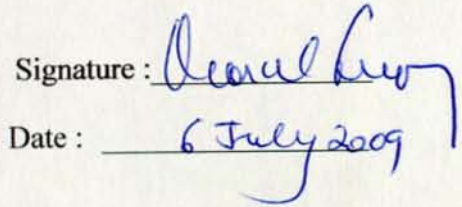 Signature :
Date : 6 July 2009